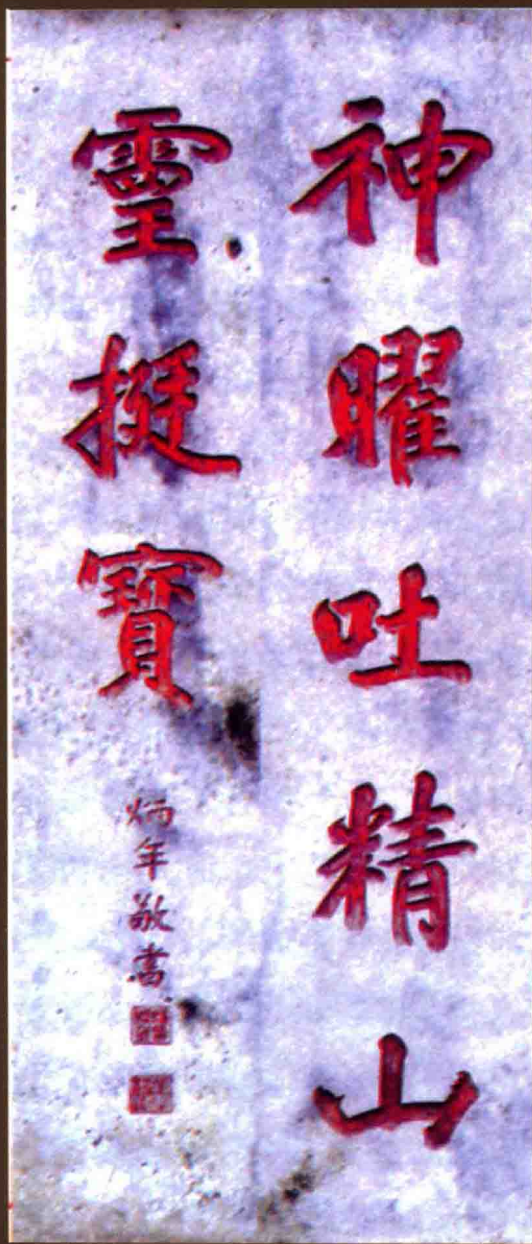 神曜吐精山
靈挺寶
炳年敬書